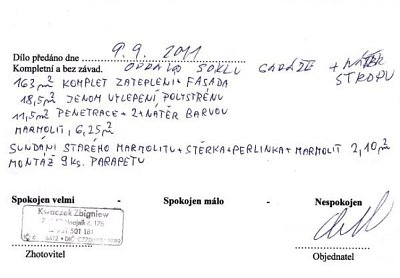 Dílo předáno dne 9.9.2011
Kompletní a bez závad. SOKLU GARÁŽE + NÁTĚR
STROPU
163 m² KOMPLET ZATEPLENI + FASADA
18,5 m² JENOM VYLEPENÍ POLYSTRÉNU
11,5 m² PENETRACE + 2x NÁTĚR BARVOU
MARMOLIT, 6,25 m²
SUNDÁNI STARÉHO MARMOLITU + STĚRKA + PERLINKA + MARMOLIT 2,10 m²
MONTÁŽ 9 ks. PARAPETU
Spokojen velmi - Spokojen málo - Nespokojen
Kwaczek Zbigniew
Zhotovitel
Objednatel